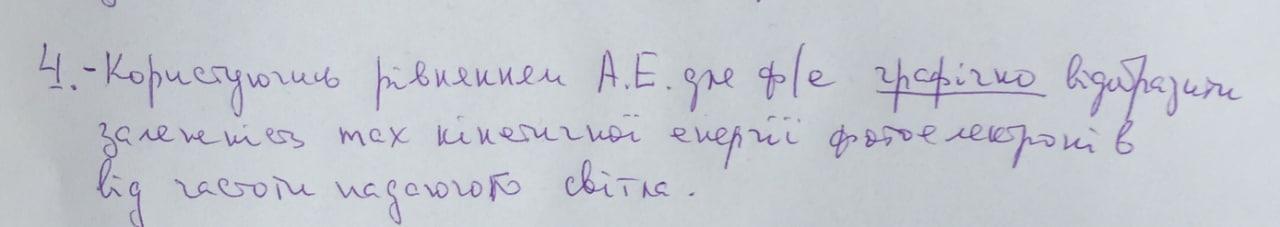 4. - Користуючись рівнянням А.Е. для ф/е графічно відобразити
залежність max кінетичної енергії фотоелектронів
від частоти падаючого світла.